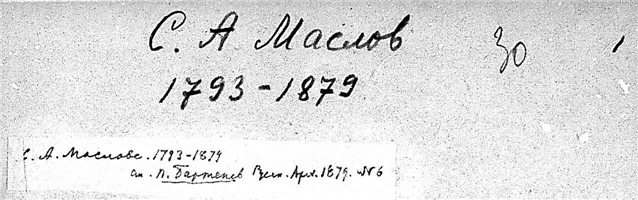 С. А Маслов 30
1793-1879
С. А. Маслове. 1793-1879
см. П. Бартенев Русск. Арх. 1879. №6